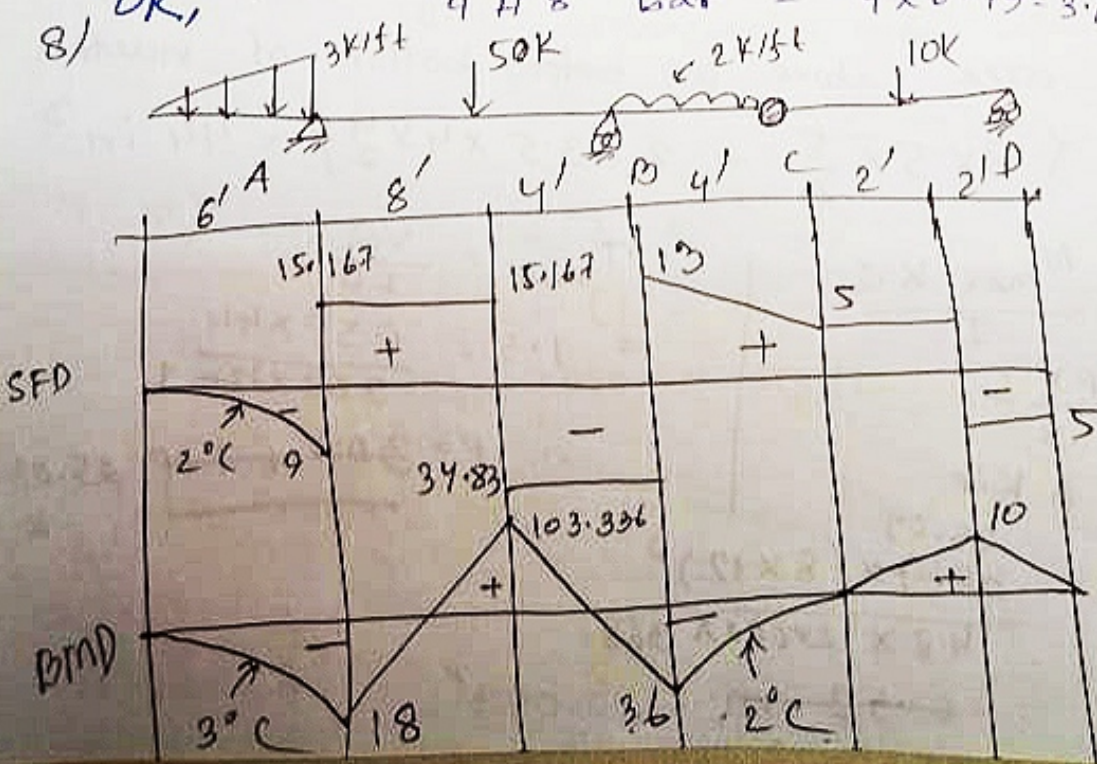 OK,
8/
3K/ft
50K
2K/ft
10K
A B C D
6' 8' 4' 4' 2' 2'
15.167
15.167
13
5
+ +
SFD
- - -
2°C
9
5
34.83
103.336
10
+ +
BMD
- -
3°C
18
36
2°C